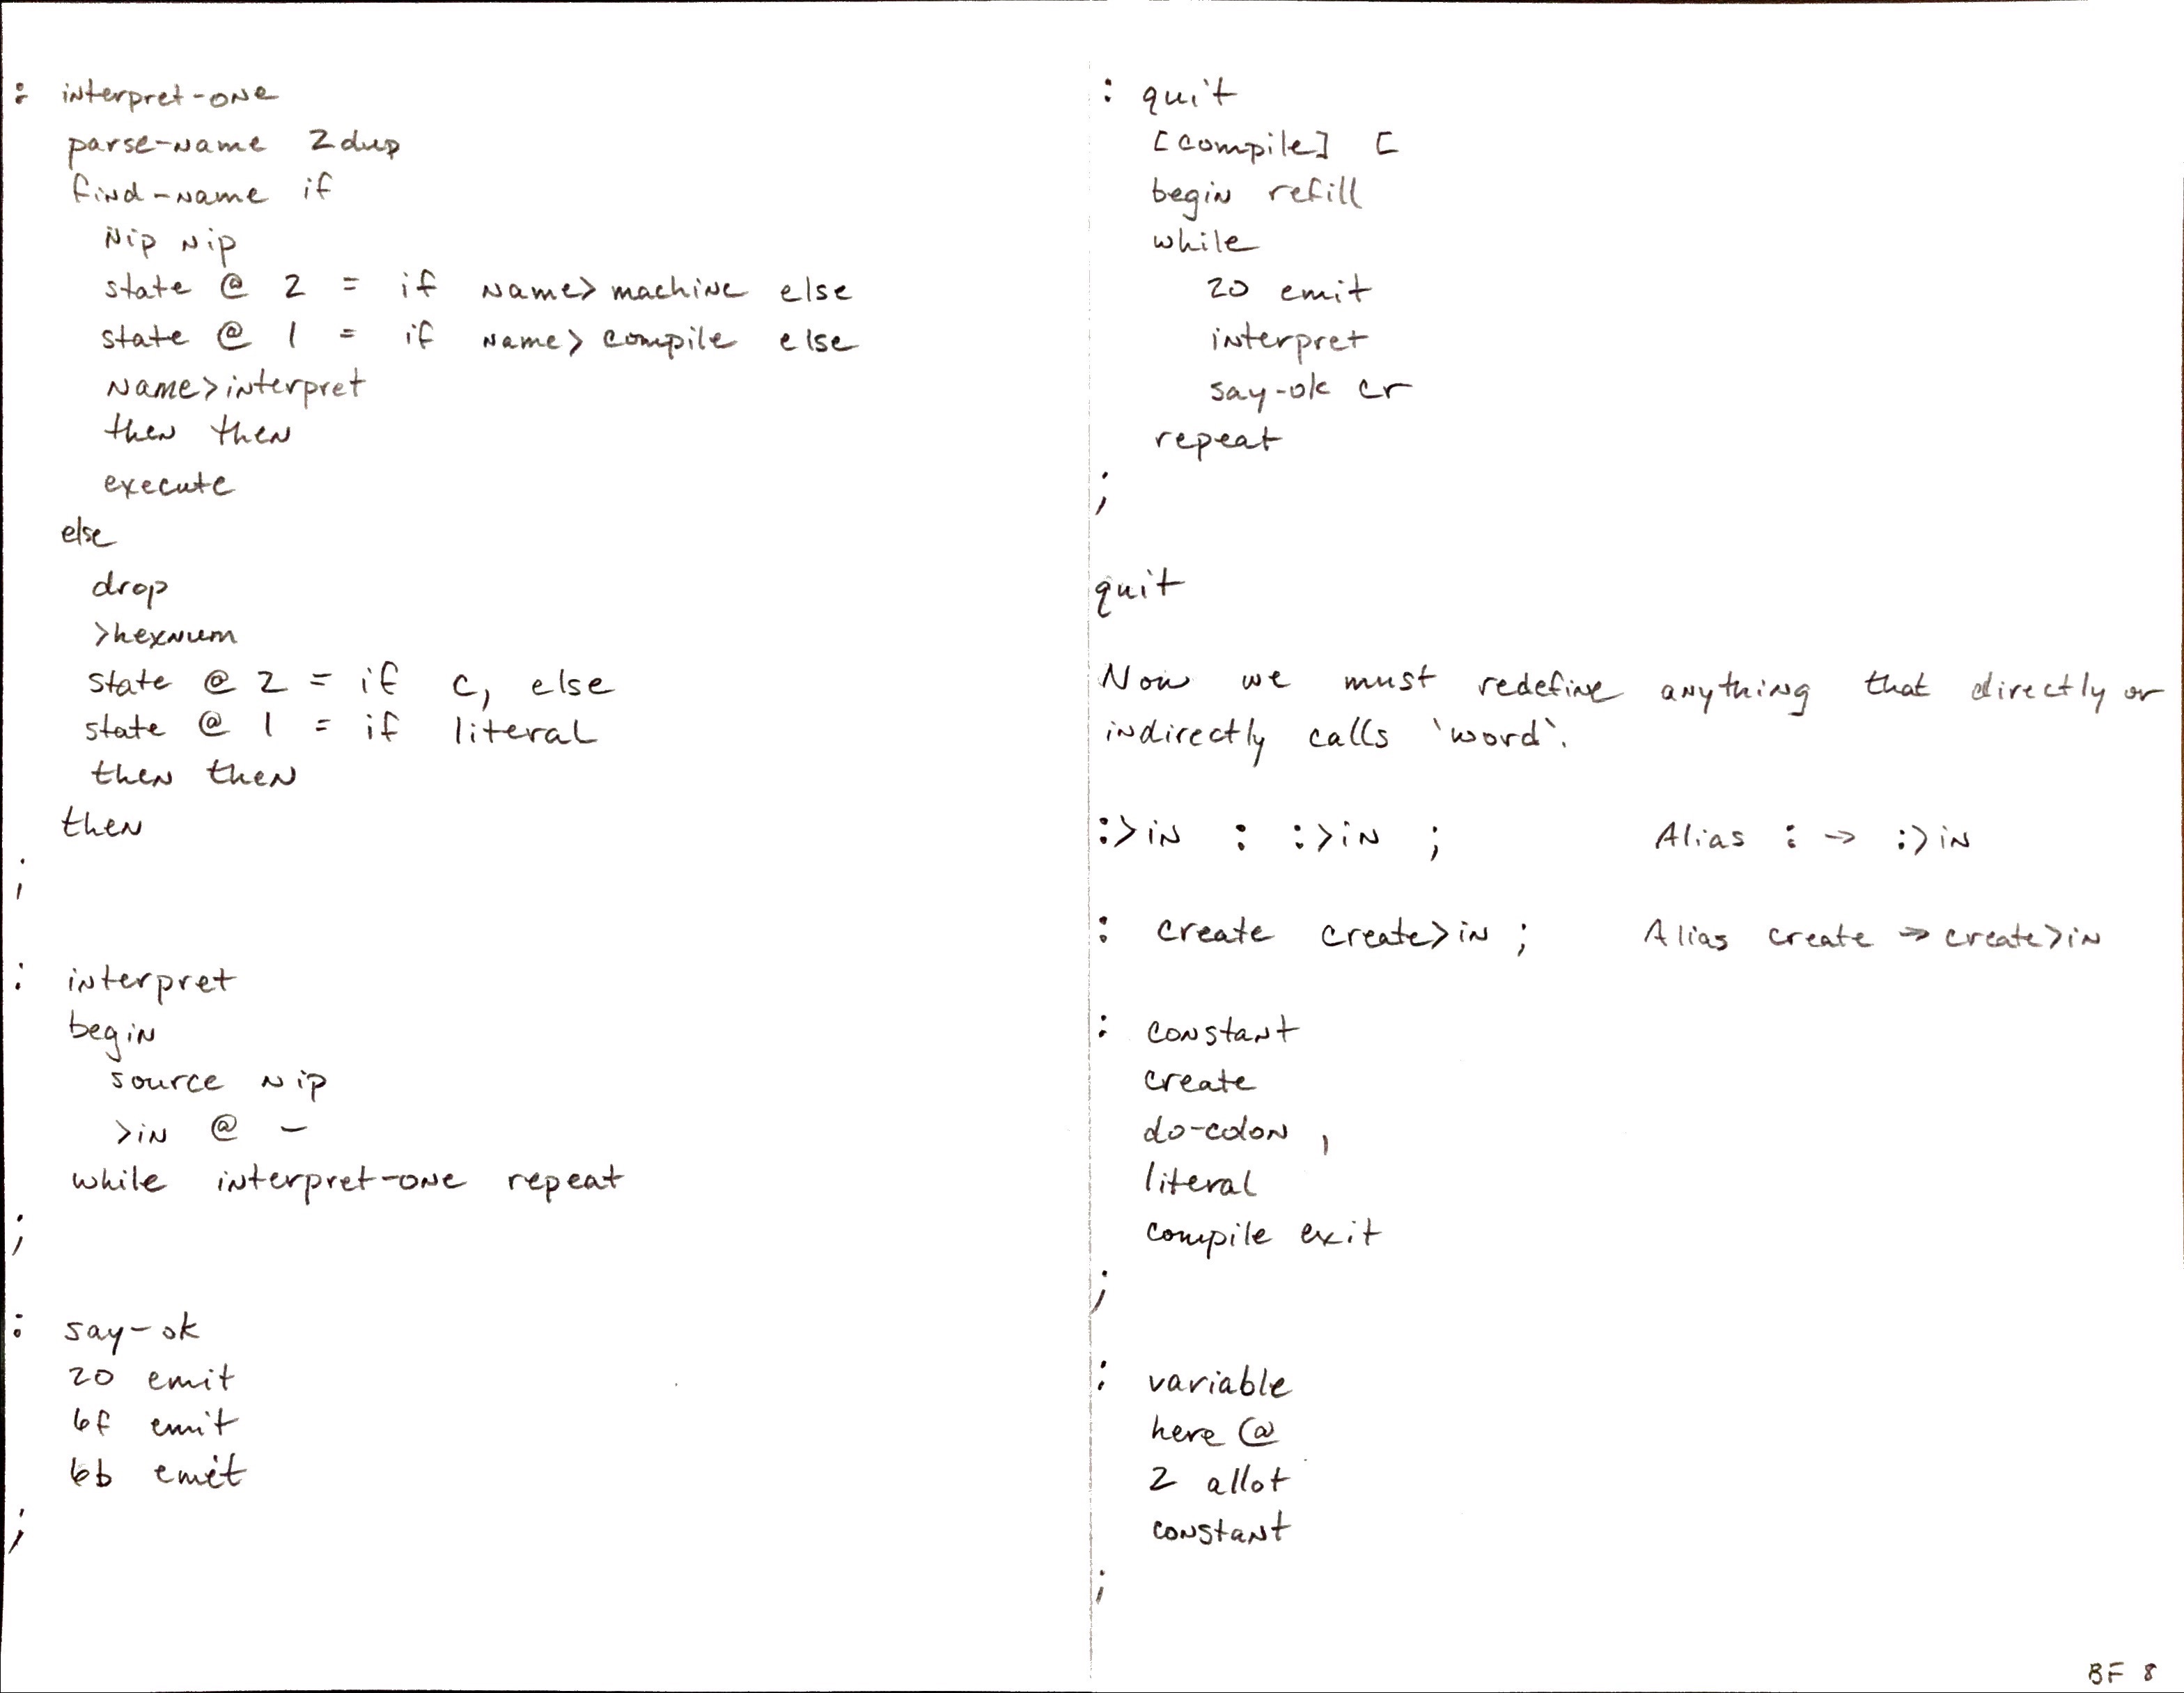 : interpret-one
parse-name 2dup
find-name if
nip nip
state @ 2 = if name>machine else
state @ 1 = if name>compile else
name>interpret
then then
execute
else
drop
>hexnum
state @ 2 = if c, else
state @ 1 = if literal
then then
then
;
: interpret
begin
source nip
>in @ -
while interpret-one repeat
;
: say-ok
20 emit
6f emit
6b emit
;
: quit
[compile] [
begin refill
while
20 emit
interpret
say-ok cr
repeat
;
quit
Now we must redefine anything that directly or
indirectly calls `word`.
:>in : :>in ; Alias : -> :>in
: create create>in ; Alias create -> create>in
: constant
create
do-colon ,
literal
compile exit
;
: variable
here @
2 allot
constant
;
BF 8